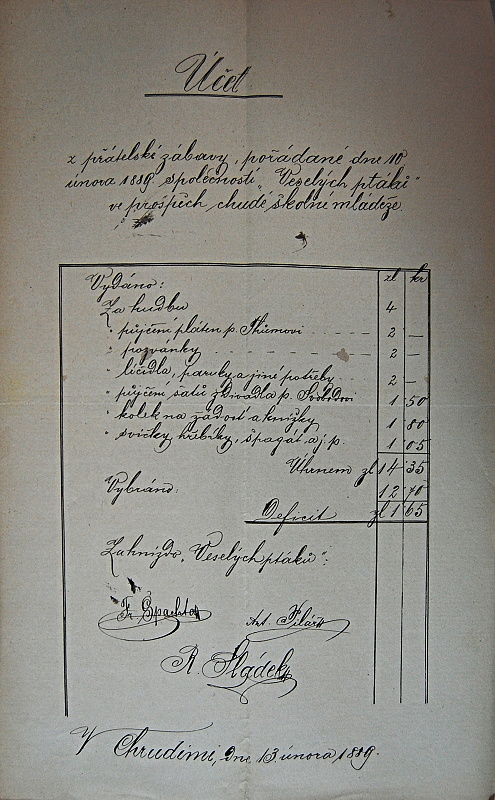 Účet
z přátelské zábavy, pořádané dne 10
února 1889 společností „Veselých ptáků“
ve prospěch chudé školní mládeže.
zl kr
Vydáno:
Za hudbu 4
" půjčení pláten p. Thiemovi 2 —
" pozvánky 2 —
" líčidla, paruky a jiné potřeby 2 —
" půjčení šatů z divadla p. Svobodovi 1 50
" kolek na žádost a knížky 1 80
" svíčky, hřebíky, špagát a j. p. 1 05
Úhrnem zl 14 35
Vybráno: 12 70
Deficit zl 1 65
Za hnízdo „Veselých ptáků“:
Fr. Spachta
Ant. Pilař
R. Sládek
V Chrudimi, dne 13. února 1889.